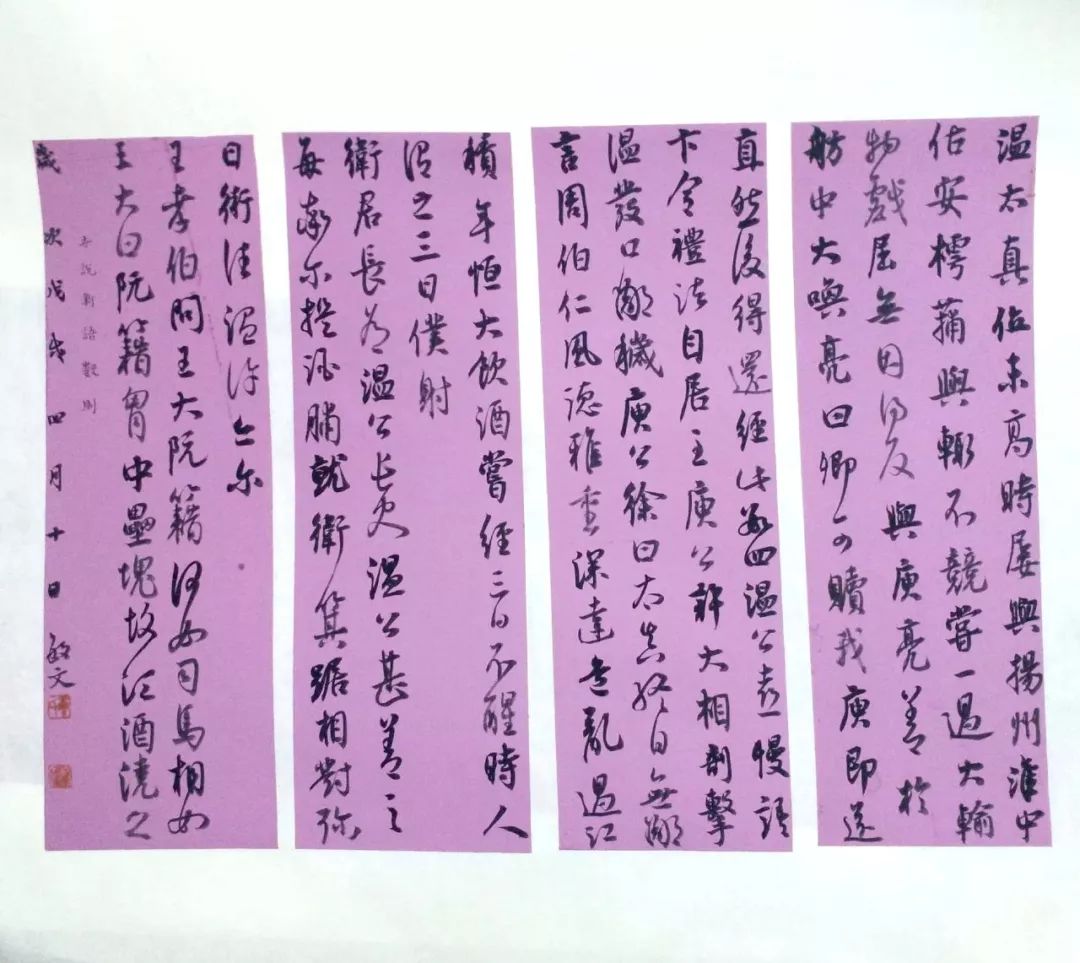 溫太真位未高時屢與揚州淮中
估客樗蒱與輒不競嘗一過大輸
物戲屈無因得反與庾亮善於
舫中大喚亮曰卿可贖我庾即送
直然後得還經此數四溫公喜慢語
卞令禮法自居至庾公許大相剖擊
溫發口鄙穢庾公徐曰太真終日無鄙
言周伯仁風德雅重深達危亂過江
積年恒大飲酒嘗經三日不醒時人
謂之三日僕射
衛君長為溫公長史溫公甚善之
每率爾提酒脯就衛箕踞相對彌
日衛往溫許亦爾
王孝伯問王大阮籍何如司馬相如
王大曰阮籍胷中壘塊故須酒澆之
世說新語數則
歲次戊戌四月十日 敏文